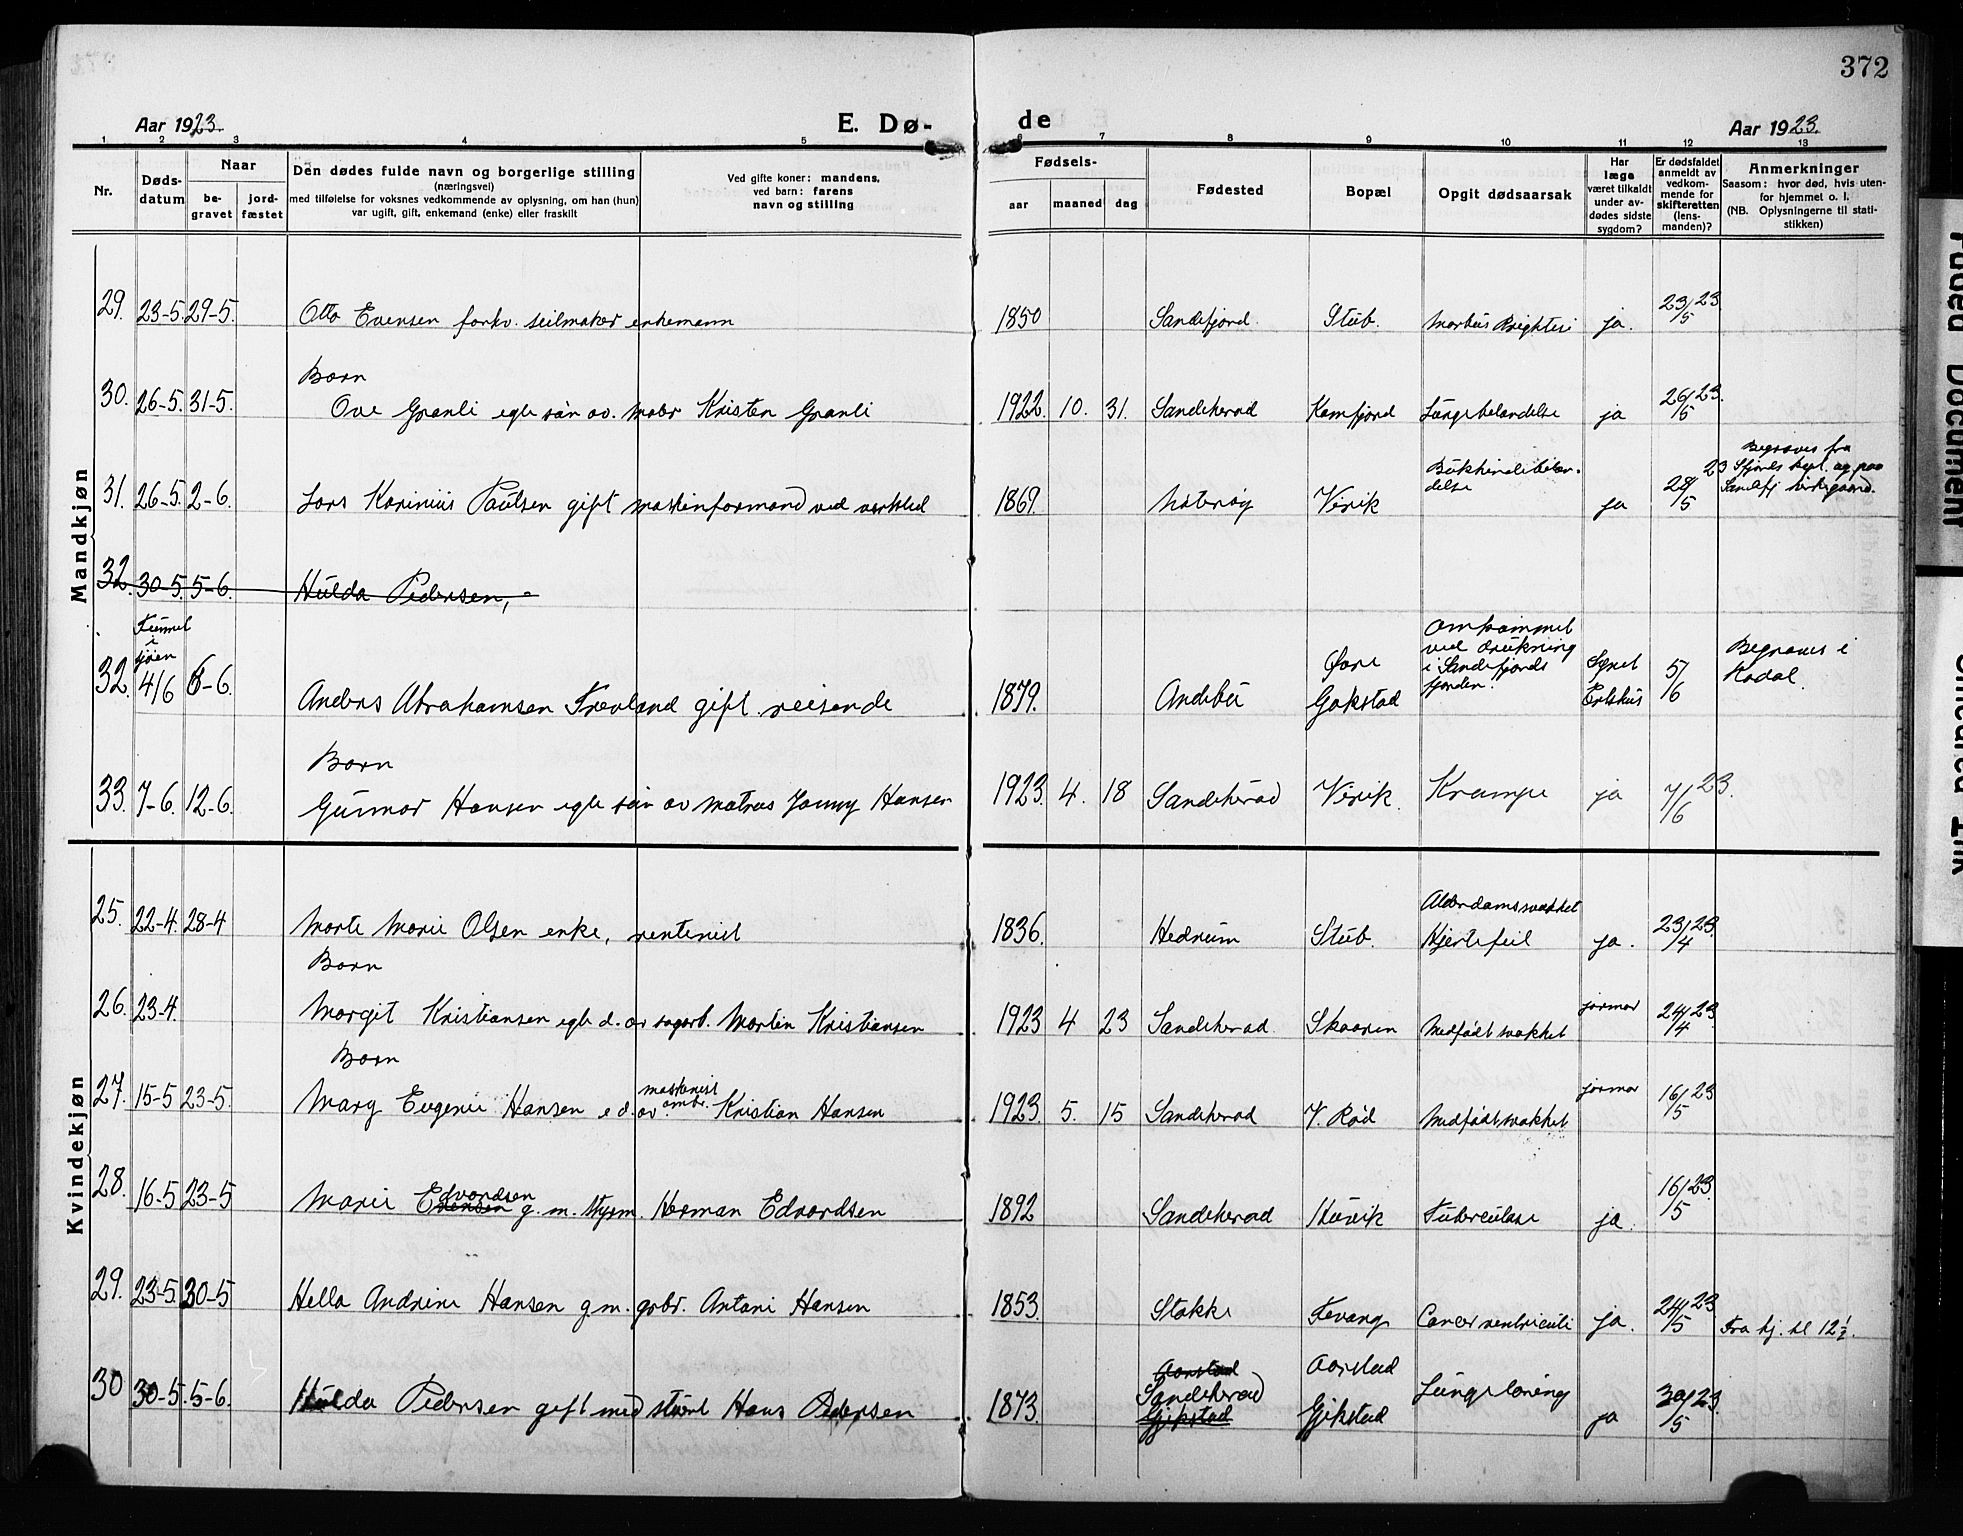 372
Aar 1923. E. Dø- de Aar 1923.
1 2 3 4 5 6 7 8 9 10 11 12 13
Nr. Døds-datum Naar be-gravet jord-fæstet Den dødes fulde navn og borgerlige stilling (næringsvei) med tilføielse for voksnes vedkommende av oplysning, om han (hun) var ugift, gift, enkemand (enke) eller fraskilt Ved gifte koner: mandens, ved barn: farens navn og stilling Fødsels- aar maaned dag Fødested Bopæl Opgit dødsaarsak Har læge været tilkaldt under av-dødes sidste sygdom? Er dødsfaldet anmeldt av vedkom-mende for skifteretten (lens-manden)? Anmerkninger Saasom: hvor død, hvis uten-for hjemmet o. l. (NB. Oplysningerne til stati-stikken)
Mandkjøn
29. 23-5. 29-5. Otto Evensen forhv. seilmaker enkemann 1850 Sandefjord. Stub. Morbus Brightii ja. 23/5 23
Barn
30. 26-5. 31-5. Ove Granli egte søn av. Kristen Granli 1922. 10. 31. Sandeherad Kamfjord Lungebetændelse ja 26/5 23.
31. 26-5. 2-6. Lars Karinius Paulsen gift maskinformand ved verksted 1869. Nøterøy Virik Bukhindebetæn-
delse ja 28/5 23 Begraves fra
Sfjords kapl. og paa
Sandefj kirkegaard.
32. 30-5. 5-6. Hulda Pedersen,
32. Funnet
i
sjøen
4/6 6-6. Anders Abrahamsen Trevland gift. reisende 1879. Andebu Øvre
Gokstad Omkommet
ved drukning
i Sandefjords
fjorden. Synet
5/6 Begraves i
Kodal.
Barn
33. 7-6. 12-6. Gunnar Hansen egte søn av matros Jonny Hansen 1923. 4. 18 Sandeherad Virik. Krampe ja 7/6 23.
Kvindekjøn
25. 22-4. 28-4 Marte Marie Olsen enke, rentenist 1836. Hedrum Stub. Alderdomssvakhet
Hjertefeil ja. 23/4 23.
Barn
26. 23-4. Margit Kristiansen egte d. av sagarb. Martin Kristiansen 1923 4 23 Sandeherad. Skaaren Medfødt svakhet jormor 24/4 23.
Barn
27. 15-5 23-5. Mary Eugenie Hansen e d. av maskinist Kristian Hansen 1923. 5. 15 Sandeherad V. Rød Medfødt svakhet jormor 16/5 23
28. 16-5 23-5 Marie Evensen Edvardsen g. m. styrm. Herman Edvardsen 1892 Sandeherad Huvik Tuberculose ja. 16/5 23.
29. 23-5. 30-5 Hella Andrine Hansen g. m. grbr. Antoni Hansen 1853. Stokke Fevang Cancer ventriculi ja. 24/5 23 Fra hj. kl 12 ½.
30 30-5. 5-6. Hulda Pedersen gift med stuert Hans Pedersen 1873. Aarstad
Sandeherad
Gjekstad Aarstad
Gjekstad Lungelaring ja 30/5 23.
Faded Document
Smeared Ink